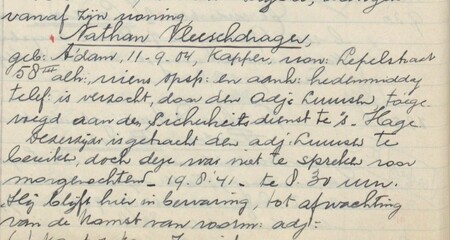 vanaf zijn woning,
Nathan Vleeschdrager,
geb: A'dam, 11-9-04, Kapper, won: Lepelstraat
58 III alh:, wiens opsp: en aanh: hedenmiddag
telef: is verzocht, door den Adjt Luuwsen, toege
voegd aan den Sicherheits dienst te 's-Hage
Dezerzijds is getracht den adj: Luuwsen te
bereiken, doch deze was niet te spreken voor
morgenochtend 19.8.'41. te 8.30 uur.
Hij blijft hier in bewaring, tot afwachting
van de komst van voorn: adj: